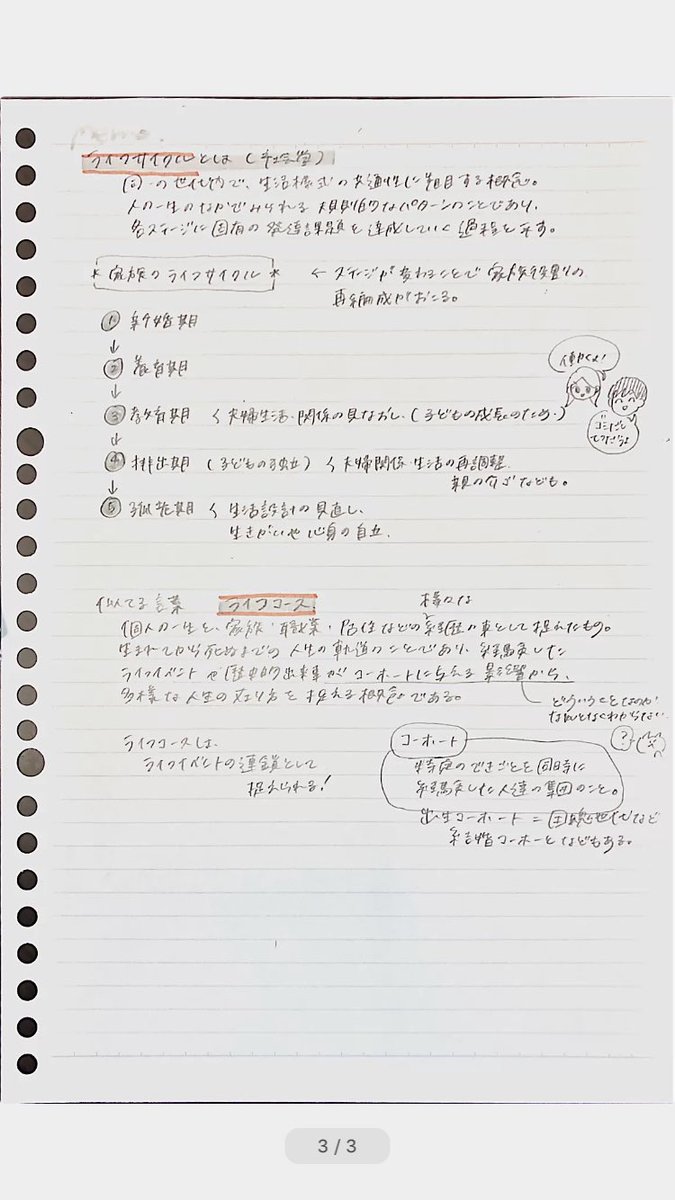 memo.
ライフサイクルとは(社会学)
同一の世代内で、生活様式の共通性に着目する概念。
人の一生のなかでみられる規則的なパターンのことであり、
各ステージに固有の発達課題を達成していく過程を示す。
*家族のライフサイクル* ← ステージが変わることで家族役割の
再編成がおこる。
① 新婚期
↓
② 養育期
↓
③ 教育期 < 夫婦生活・関係の見なおし。(子どもの成長のため)
↓
④ 排出期 (子どもの独立) < 夫婦関係・生活の再調整。
親の介ゴなども。
↓
⑤ 孤老期 < 生活設計の見直し、
生きがいや心身の自立。
働くよ!
ゴミだし
似てる言葉 ライフコース
様々な
個人の一生を、家族・職業・居住などの経歴の束として捉えたもの。
生まれてから死ぬまでの人生の軌道のことであり、経験した
ライフイベントや歴史的出来事がコーホートに与える影響から、
多様な人生の在り方を捉える概念である。
どういうことなのか
なんとなくわからない
?
ライフコースは、
ライフイベントの連鎖として
捉えられる!
コーホート
特定のできごとを同時に
経験した人達の集団のこと。
出生コーホート=団塊世代など
結婚コーホートなどもある。
3 / 3